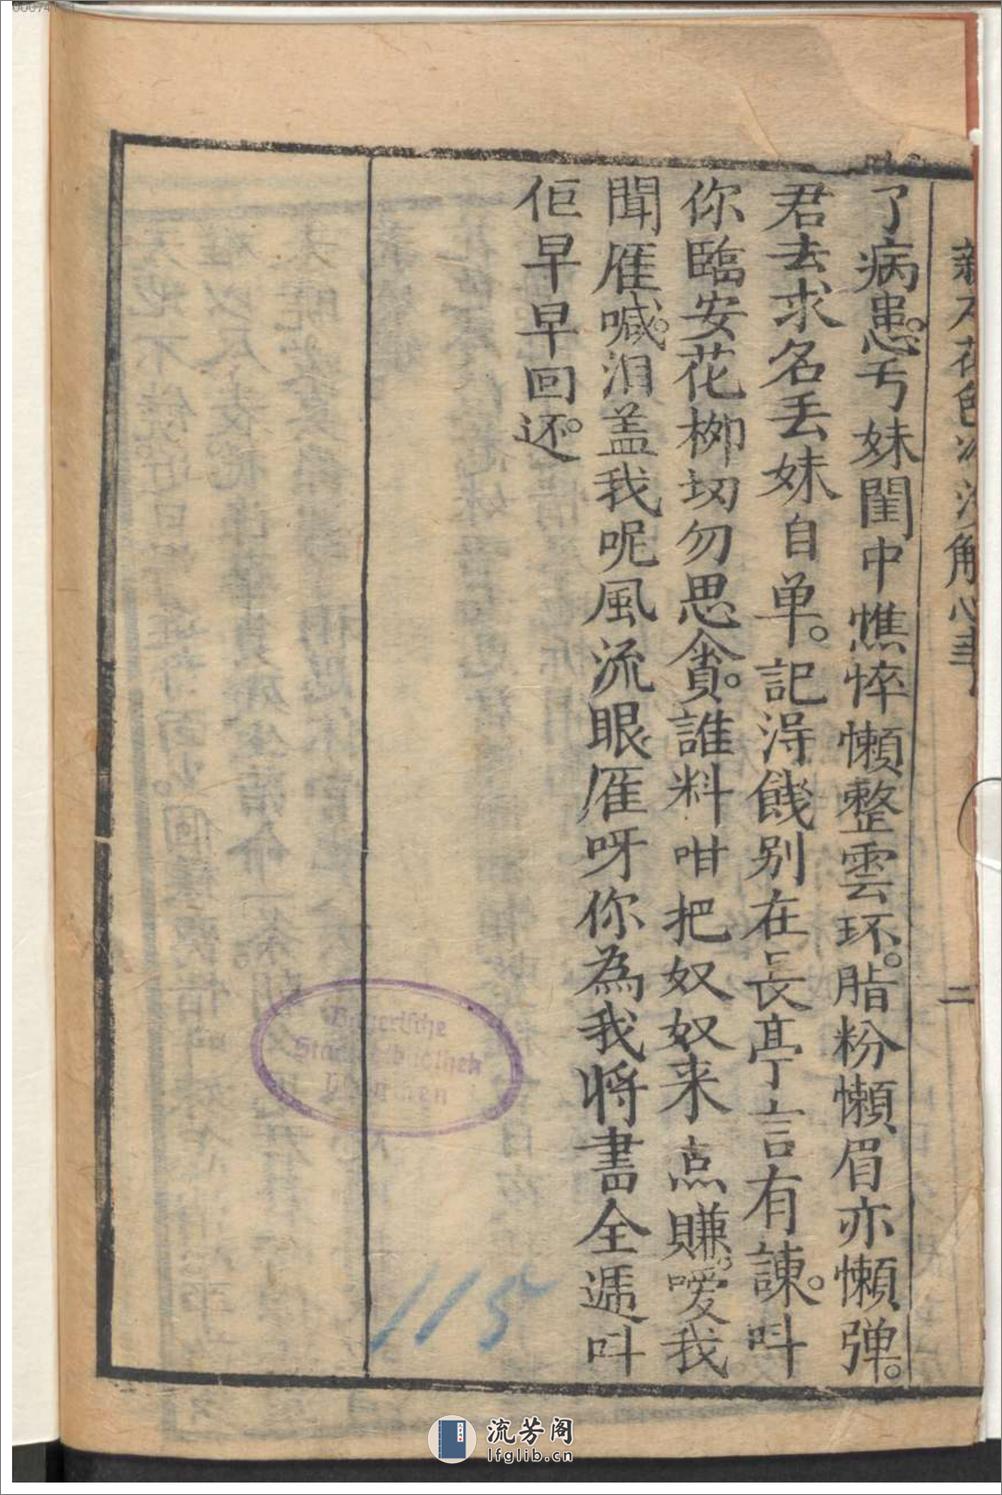 了病患。丐妹閨中憔悴懶整雲环。脂粉懶眉亦懶弹。
君去求名丢妹自单。記淂餞別在長亭言有諫。叫
你臨安花栁切勿思貪。誰料咁把奴奴来点賺。嗳我
聞雁喊。泪盖我呢風流眼雁呀你為我將書全遞叫
佢早早回还。
二
Bayerische
Staatsbibliothek
München
115
流芳阁
lfglib.cn